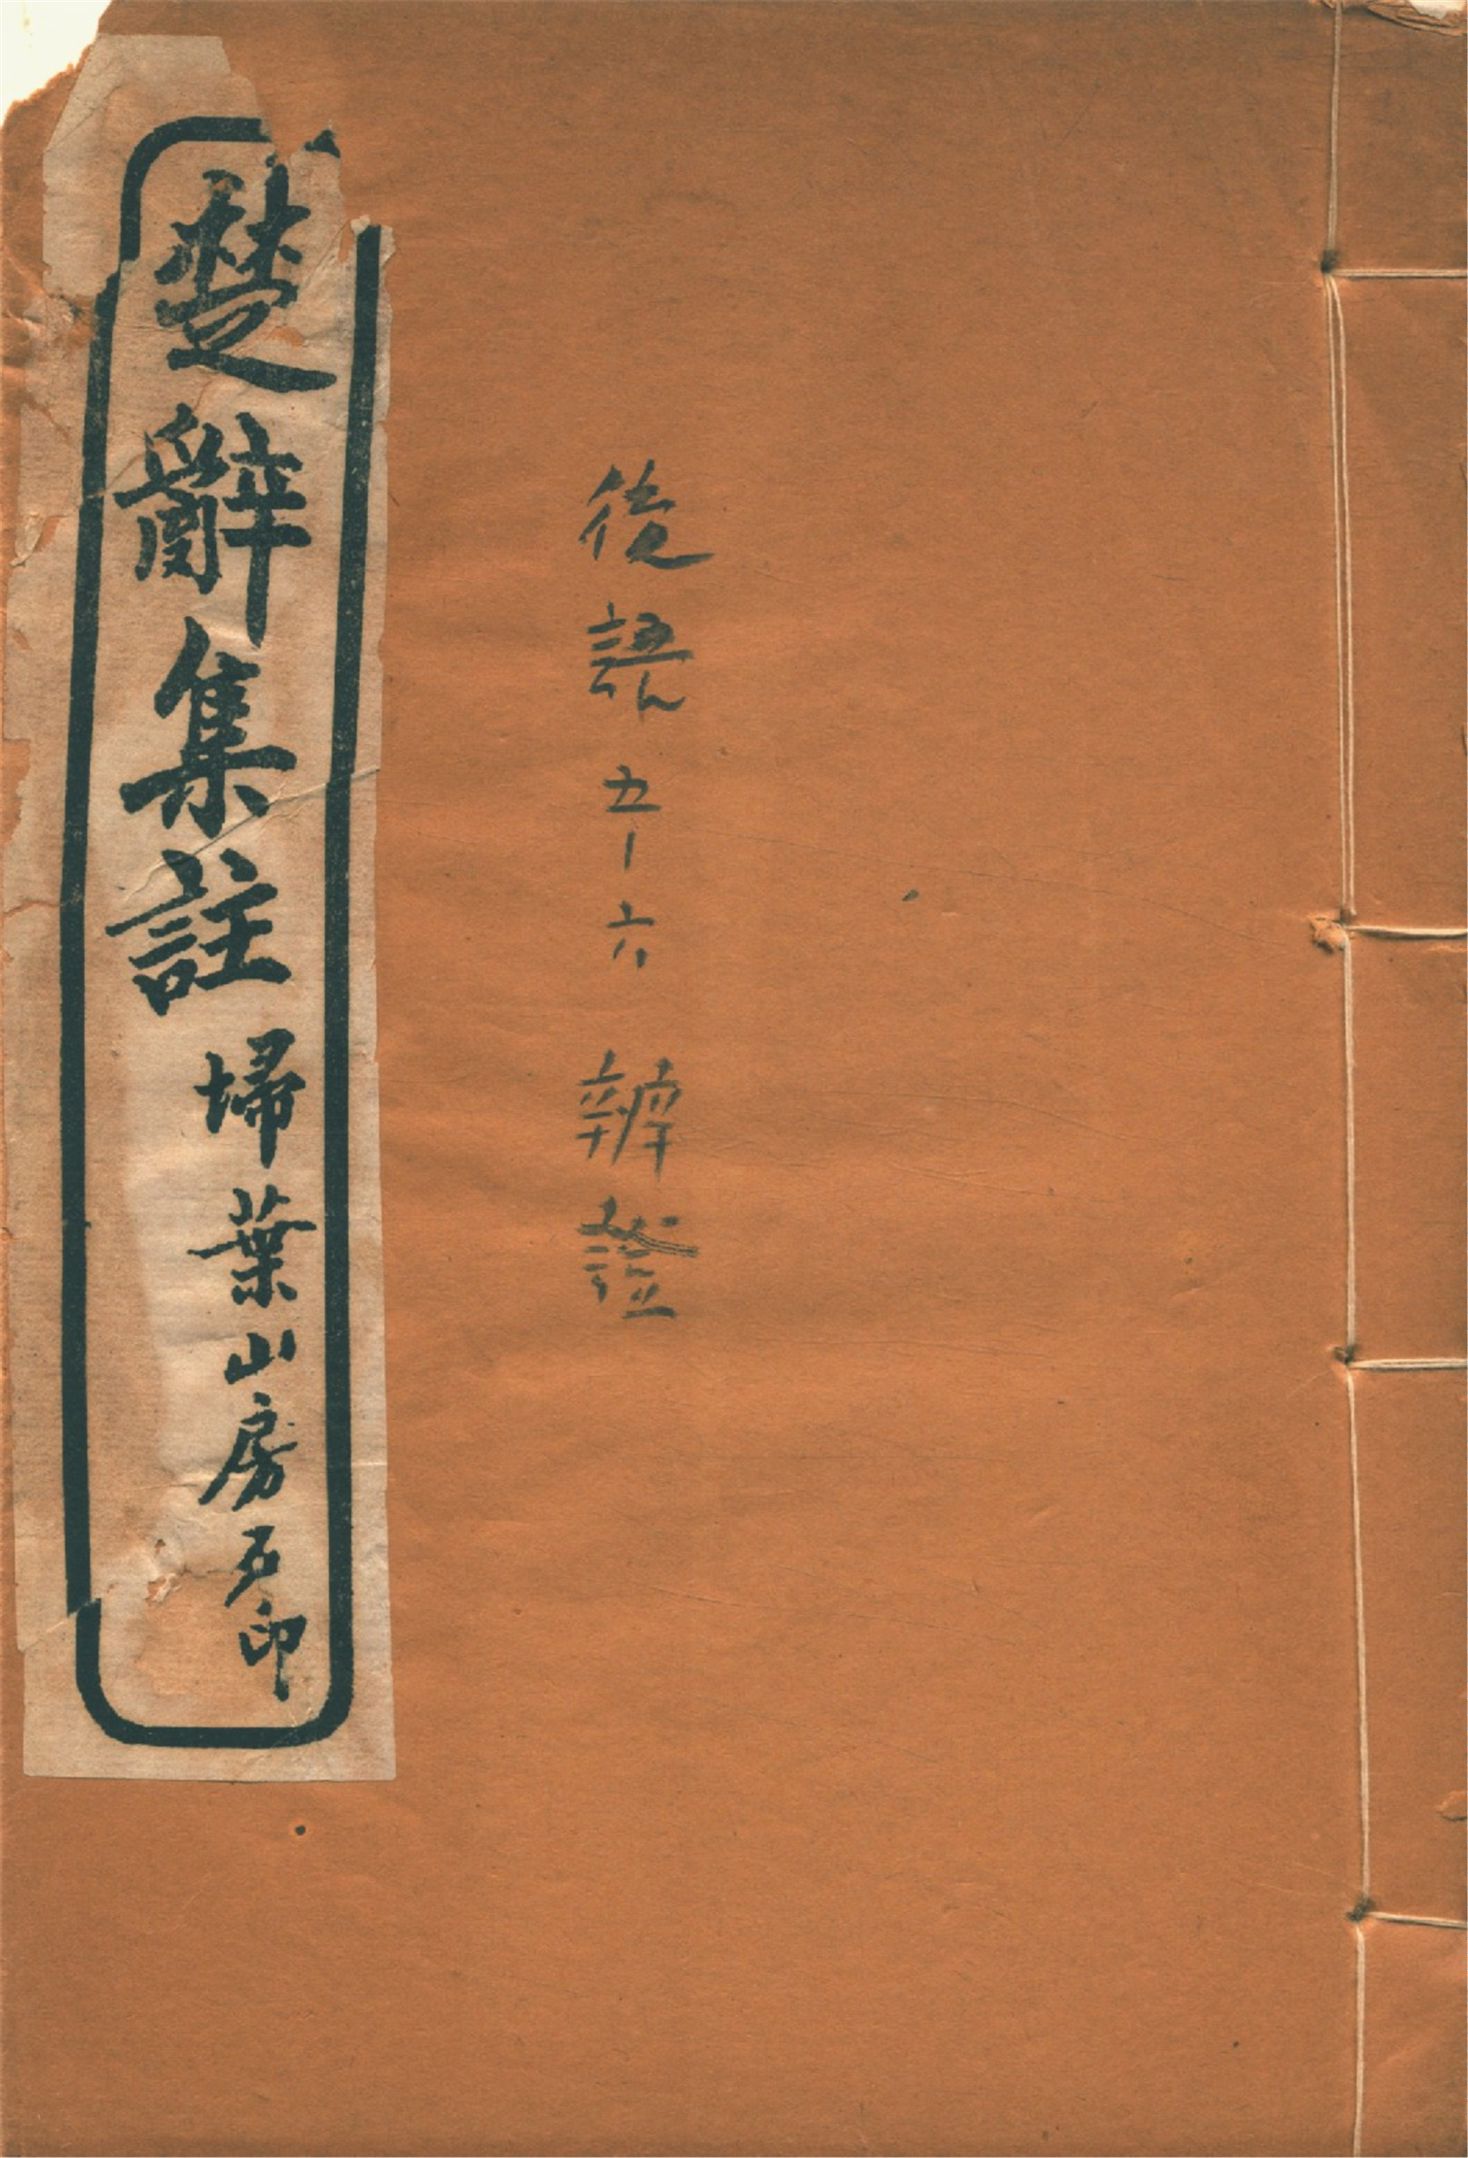 後語五－六 辨證
楚辭集註 埽葉山房石印